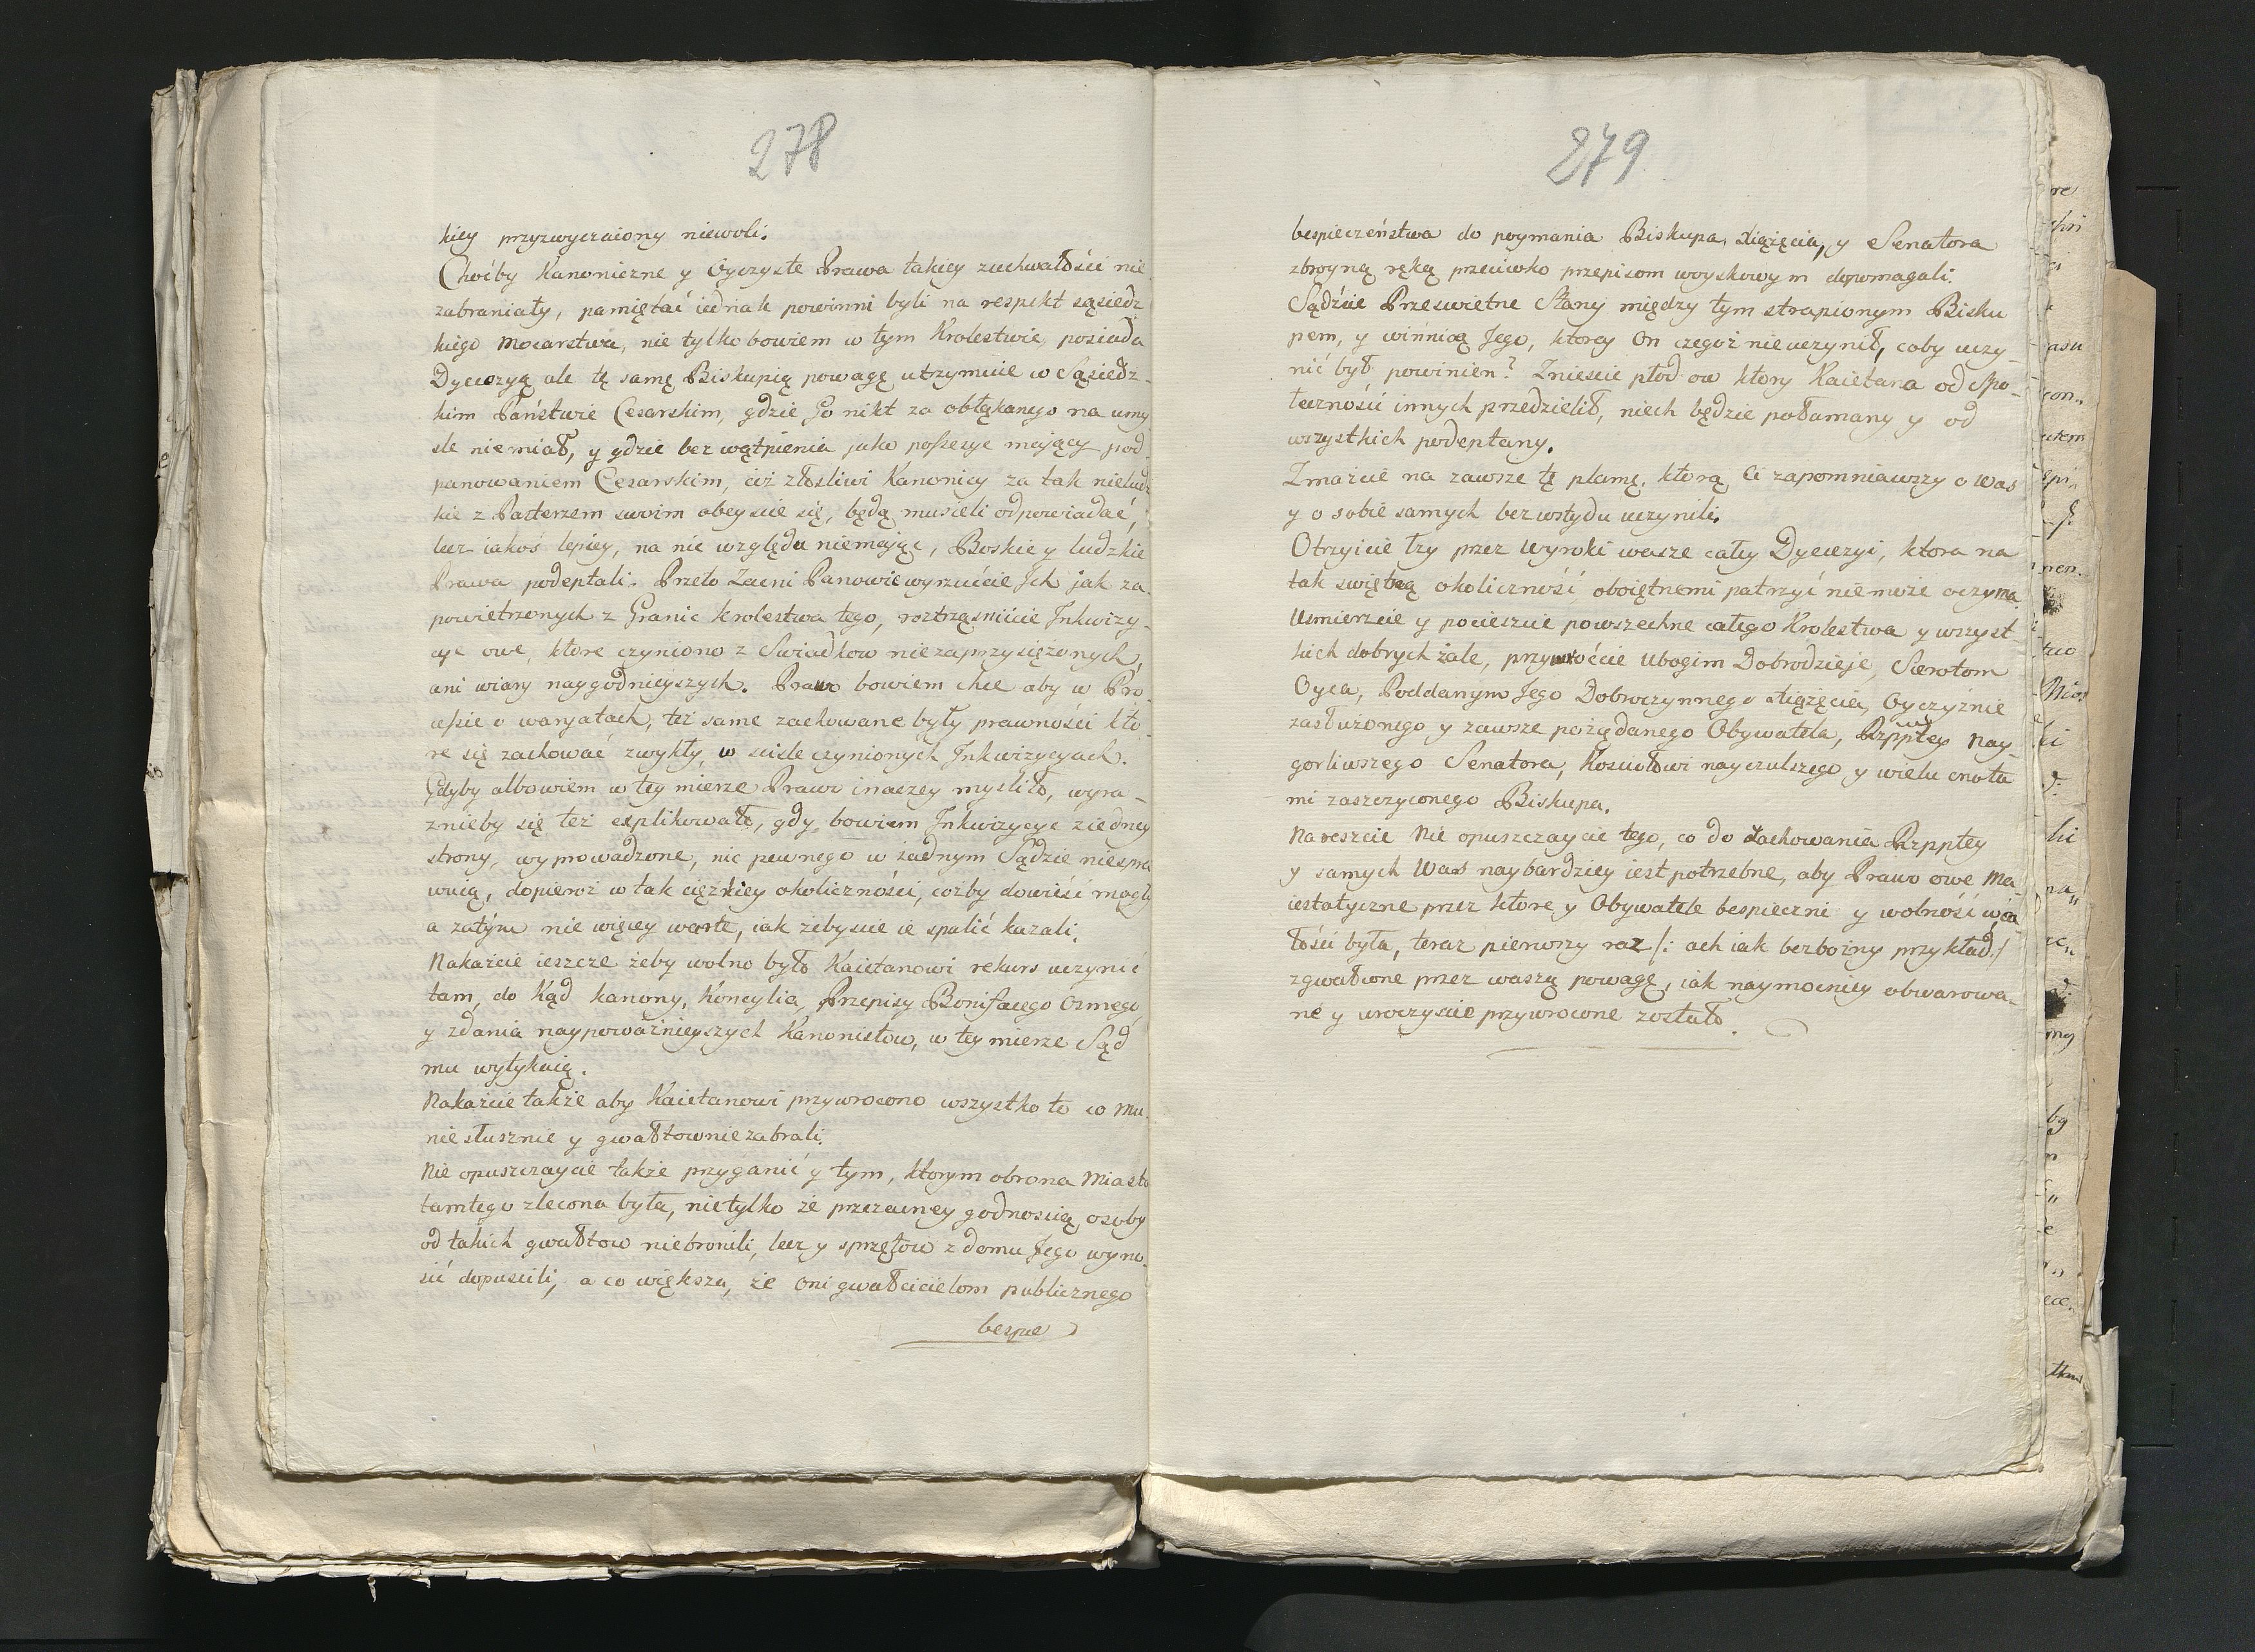 278
kiey przyzwyczaiony niewoli.
Choćby Kanoniczne y Oyczyste Prawa takiey zuchwałości nie
zabraniały, pamiętać iednak powinni byli na respekt sąsiedz
kiego Mocarstwa, nie tylko bowiem w tym Krolestwie posiada
Dyecezyą ale tę samę Biskupią powagę utrzymuie w Sąsiedz-
kim Państwie Cesarskim, gdzie Go nikt za obłąkanego na umy
sle niemiał, y gdzie bez wątpienia jako possesye mający pod
panowaniem Cesarskim, ciż złosliwi Kanonicy za tak nieludz
kie z Pasterzem swoim obeyscie się, będą musieli odpowiadać,
lecz iakoś lepiey, na nic względu niemaiąc, Boskie y ludzkie
Prawa podeptali. Przeto Zacni Panowie wyrzućcie Ich jak za
powietrzonych z Granic Krolestwa tego, roztrząsniycie Inkwizy-
cye owe, ktore czyniono z Swiadkow niezaprzysiężonych,
ani wiary naygodnieyszych. Prawo bowiem chce aby w Pro-
cessie o waryatach, też same zachowane były prawności kto
re się zachować zwykły, w scisle czynionych Inkwizycyach.
Gdyby albowiem w tey mierze Prawo inaczey mysliło, wyra-
znieby się też explikowało, gdy bowiem Inkwizycye ziedney
strony, wyprowadzone, nic pewnego w żadnym Sądzie niespra
wuią, dopieroż w tak cięzkiey okoliczności, cożby dowieść mogły
a zatym nie więcey warte, iak żebyscie ie spalić kazali.
Nakażcie ieszcze żeby wolno było Kaietanowi rekurs uczynić
tam, do Kąd kanony, Koncylia, Przepisy Bonifacego Osmego
y zdania naypoważnieyszych Kanonistow, w tey mierze Sąd
mu wytykaią.
Nakażcie także aby Kaietanowi przywrocono wszystko to co Mu
niesłusznie y gwałtownie zabrali.
Nie opuszczaycie także przyganić y tym, ktorym obrona Miasta
tamtego zlecona była, nietylko że przezacney godnoscią osoby
od takich gwałtow niebronili, lecz y sprzętow z domu Jego wyno-
sić dopuscili, a co większa, że oni gwałcicielom publicznego
bespie
279
bespieczeństwa do poymania Biskupa, Xiążęcia, y Senatora
zbroyną ręką przeciwko przepisom woyskowym dopomagali.
Sądźcie Przeswietne Stany między tym strapionym Bisku
pem, y winnicą Jego, ktorey On czegoż nieuczynił, coby uczy-
nić był powinien? Zniescie płod ow ktory Kaietana od spo-
łeczności innych przedzielił, niech będzie połamany y od
wszystkich podeptany.
Zmażcie na zawsze tę plamę, ktorą Ci zapomniawszy o Was
y o sobie samych bez wstydu uczynili.
Otrzyicie łzy przez Wyroki wasze całey Dyecezyi, ktora na
tak swiętną okoliczność oboiętnemi patrzyć niemoże oczyma.
Usmierzcie y pocieszcie powszechne całego Krolestwa y wszyst-
kich dobrych żale, przywroćcie Ubogim Dobrodzieje, Sierotom
Oyca, Poddanym Jego Dobroczynnego Xiążęcia, Oyczyźnie
zasłużonego y zawsze pożądanego Obywatela, Rzppltey nay
gorliwszego Senatora, Kosciołowi nayczulszego y wielu cnota
mi zaszczyconego Biskupa.
Nareszcie Nie opuszczaycie tego, co do Zachowania Rzppltey
y samych Was naybardziey iest potrzebne, aby Prawo owe Ma-
iestatyczne przez ktore y Obywatele bespieczni y wolność w ca
łości była, teraz pierwszy raz /: ach iak bezbożny przykład :/
zgwałcone przez waszą powagę, iak naymocniey obwarowa-
ne y uroczyscie przywrocone zostało.